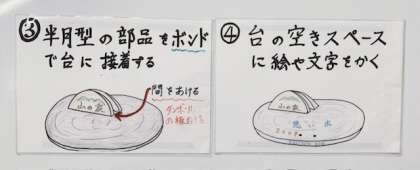 ③半月型の部品をボンド
で台に接着する
間をあける
山の家
④台の空きスペース
に絵や文字をかく
山の家
思い出